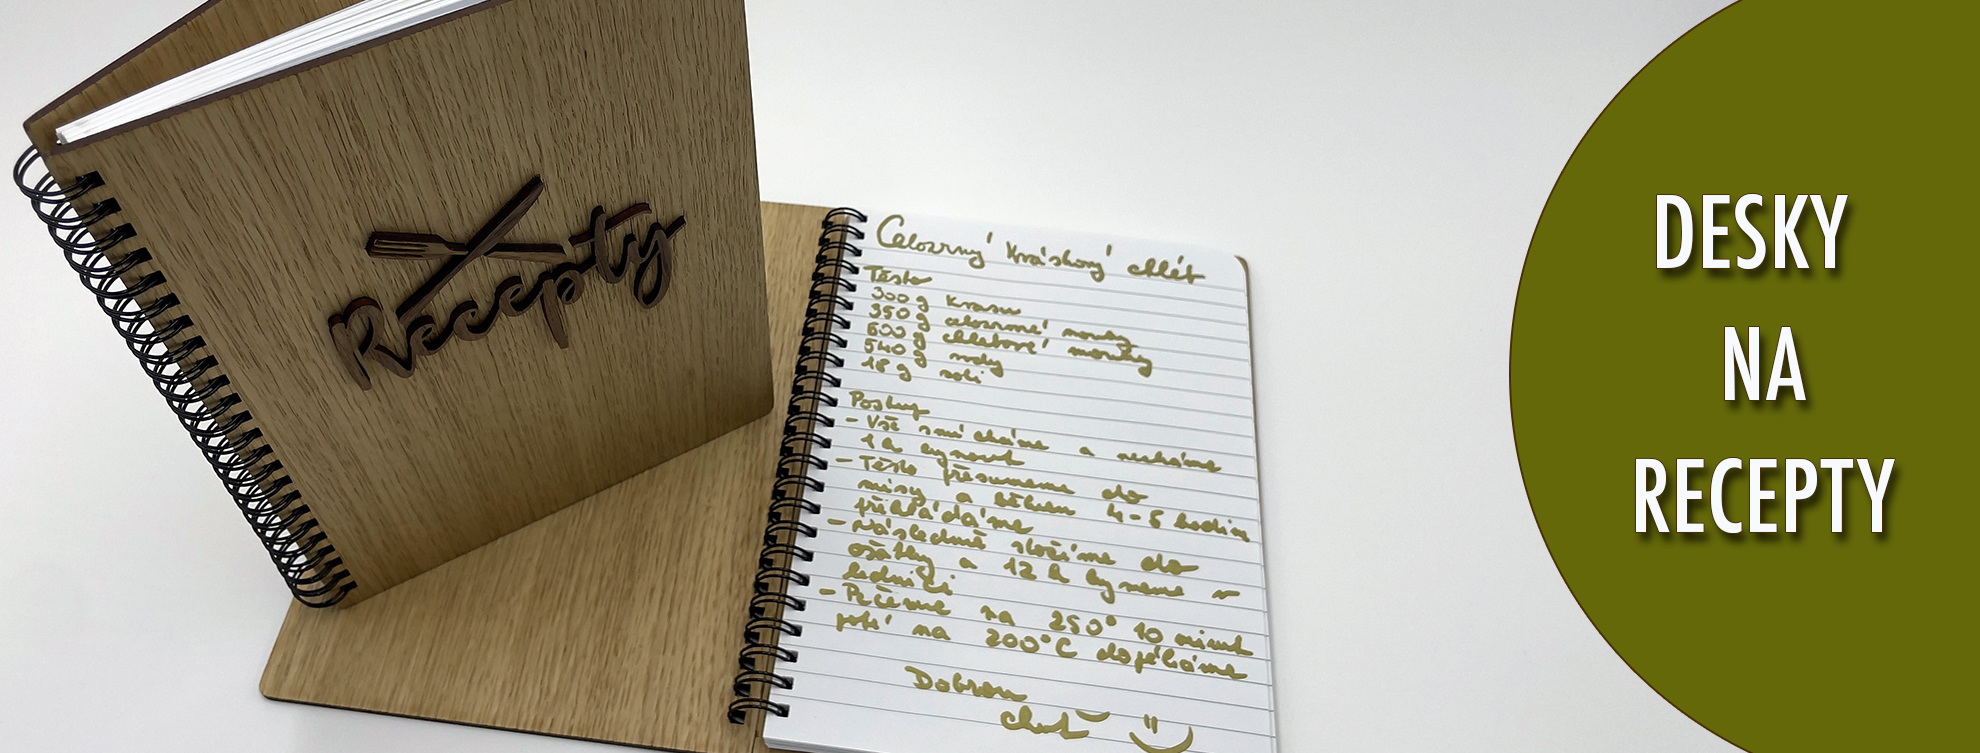 Recepty
Celozrnný kváskový chléb
Těsto
300 g kvasu
350 g celozrnné mouky
600 g chlebové mouky
540 g vody
18 g soli
Postup
- Vše smícháme a necháme
1 h kynout
- Těsto přesuneme do
mísy a během 4-5 hodin
překládáme
- Následně vložíme do
ošatky a 12 h kyneme v
lednici
- Pečeme na 250° 10 minut
poté na 200°C dopékáme
Dobrou
chuť
DESKY
NA
RECEPTY